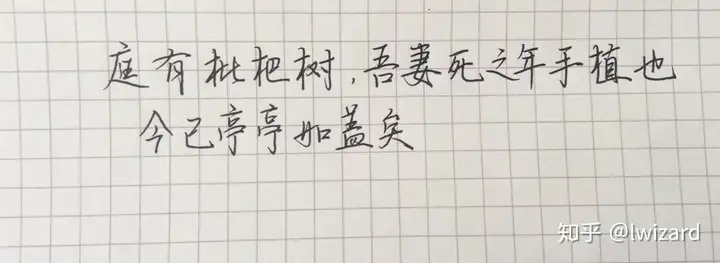 庭有枇杷树，吾妻死之年手植也
今已亭亭如盖矣
知乎 @lwizard